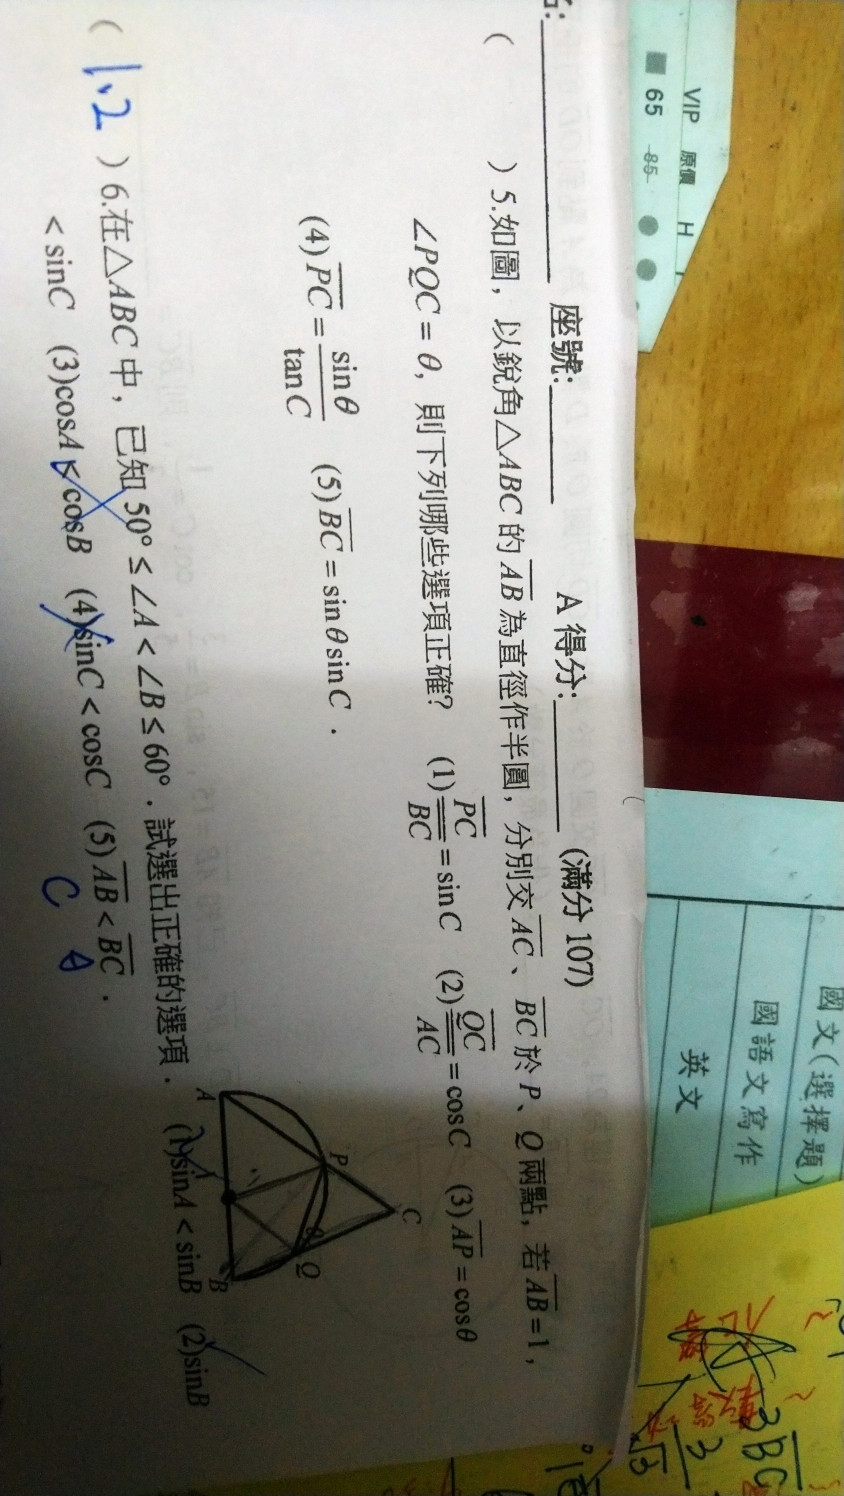 座號: A 得分: (滿分 107)
( ) 5.如圖，以銳角△ABC 的 AB 為直徑作半圓，分別交 AC、BC 於 P、Q 兩點，若 AB=1，
∠PQC = θ，則下列哪些選項正確？ (1) PC/BC = sinC (2) QC/AC = cosC (3) AP = cosθ
(4) PC = sinθ/tanC (5) BC = sinθ sinC．
A P C Q B
( 1、2 ) 6.在△ABC 中，已知 50° ≤ ∠A < ∠B ≤ 60°．試選出正確的選項． (1)sinA < sinB (2)sinB
< sinC (3)cosA < cosB (4)sinC < cosC (5) AB < BC．
C A
VIP 原價 H
65 85
國文(選擇題)
國語文寫作
英文
3 BC
3
√3